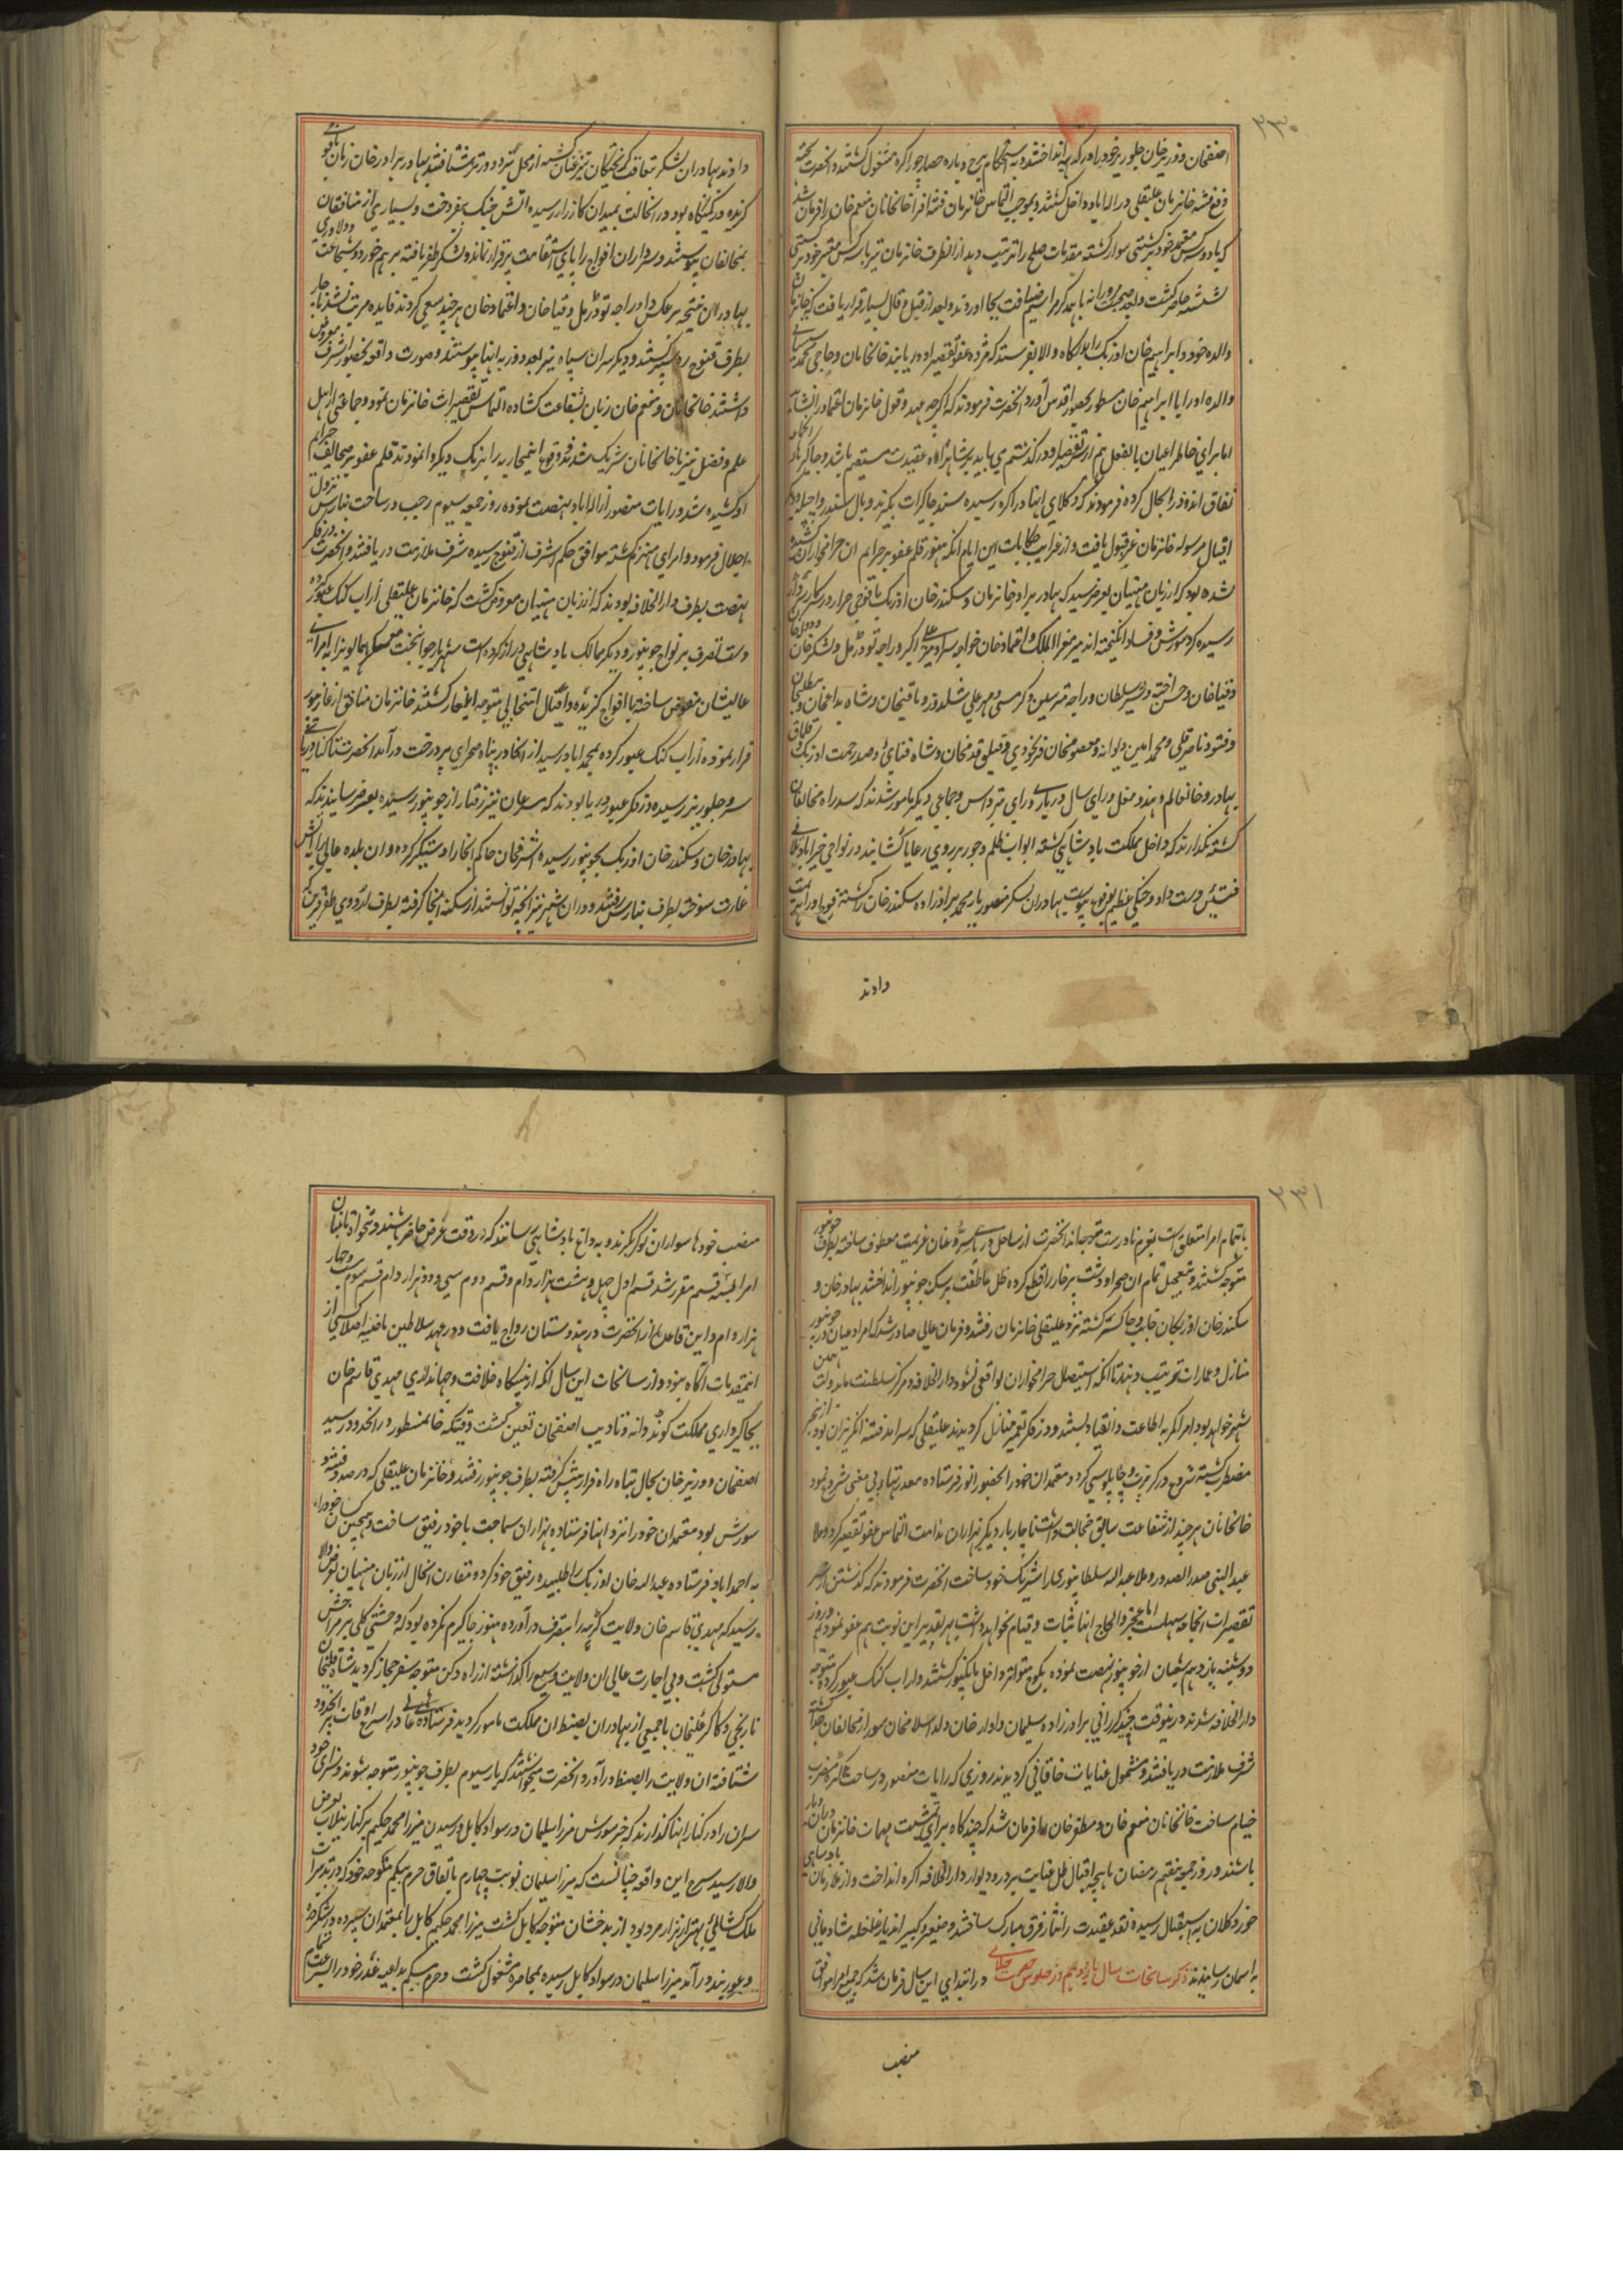 ۲۳۰
اصفخان و وزیر خان جلوریز خود را در کره انداختند و به استحکام برج و باره حصار
دفع فتنه خانزمان علیقلی در اله اباد داخل کشتند و بموجب التماس خانزمان خانخانان منعم خان را فرمان شد
که با دو سه کس معتمد خود بر کشتی سوار کشته مقدمات صلح را ترتیب دهد از انطرف خانزمان نیز با سه کس معتبر خود بر کشتی
نشسته حاضر کشت و بعد از قیل و قال بسیار قرار یافت که خانزمان
والده خود و ابراهیم خان اوزبک را بدرکاه والا بفرستد که مژده عفو تقصیر او دریابند خانخانان و حاجی محمد
والده او را با ابراهیم خان مسطور بحضور اقدس آورد انحضرت فرمودند که اکرچه بر عهد و قول خانزمان اعتماد
اما برای خاطر اعیان بالفعل هم از تقصیر او در کذشتم می باید بر شاهراه عقیدت مستقیم باشد و جاکیر
فرمودند که وکلای اینها در اکره رسیده سند جاکیرات بکیرند و بال سکندر
اقبال مرسوله خانزمان عز قبول یافت و از غرایب حکایات این ایام انکه هنوز قلم عفو بر جرایم ان حرامخواران کشیده
نشده بود که از زبان منهیان بعرض رسید که بهادر برادر خانزمان و سکندر خان اوزبک با فوجی جرار در سرکار
رسیده کرد شورش و فساد انکیخته اند میر معز الملک و اعتماد خان خواجه سرا و راجه تودرمل و لشکر خان
و قیا خان و حسن اخته و سلطان و راجه متر سین و کرمسی و مهر علی سلدوز و باقیخان و شاه بداغخان
و فتو و ناصر قلی و محمد امین دیوانه و معصومخان فرنخودی و قتلق قدمخان و شاه فنایی و صدر رحمت اوزبک
بهادر و خانعالم و هندو مغل و رای سال درباری و رای پترداس و جماعی دیکر مامور شدند که سد راه مخالفان
کشته نکذارند که داخل مملکت بادشاهی کشته ابواب ظلم و جور بر روی رعایا کشایند در نواحی خیراباد تلاقی
فئتین دست داد و جنکی عظیم بوقوع پیوست بهادران لشکر منصور یار محمد برادرزاده سکندر خان را کشته فوج او را هزیمت
دادند
دادند بهادران لشکر تعاقب کریختکان
کزیده در کمینکاه بود در انحالت بمیدان کارزار رسیده اتش جنک بیفروخت و بسیاری از منافقان
بمخالفان پیوستند و سرداران افواج را پای استقامت برقرار نماند و لشکر ظفر یافته بر هم خورد و شجاعت و دلاوری
بهادران نتیجه بر عکس داد و راجه تودرمل و قیا خان و اعتماد خان هر چند سعی کردند فایده مرتب نشد ناچار
بطرف قنوج ره سپر کشتند و دیکر سران سپاه نیز بعد دو روز به اینها پیوستند و صورت واقعه بحضور اشرف معروض
داشتند خانخانان و منعم خان زبان بشفاعت کشاده التماس تقصیرات خانزمان نمود و جماعتی از اهل
علم و فضل نیز با خانخانان شریک شدند و وقوع اینمحاربه را برنک دیکر وا نمودند قلم عفو بر صحایف جرایم
او کشیده شد و رایات منصور از اله اباد نهضت نموده روز جمعه سیوم رجب در ساحت بنارس نزول
اجلال فرمود و امرای منهزم کشته موافق حکم اشرف از قنوج رسیده شرف ملازمت دریافتند و انحضرت در فکر
نهضت بطرف دار الخلافه بودند که از زبان منهیان معروض کشت که خانزمان علیقلی از آب کنک عبور کرده
دست تصرف بر نواح جونپور و دیکر ممالک بادشاهی دراز کرده است شهریار جوانبخت معسکر همایون را به امرای
عالیشان مفوض ساخته با افواج کزیده و اقیال انتخابی متوجه ایلغار کشتند خانزمان منافق از غازیپور
فرار نموده از آب کنک عبور کرده بمحمداباد رسید از انجا در پناه صحرای پر درخت در آمد انحضرت تا کنار دریای
سرو جلوریز رسیده در فکر عبور دریا بودند که مسرعان تیز رفتار از جونپور رسیده بعرض رسانیدند که
بهادر خان و سکندر خان اوزبک بجونپور رسیده اشرفخان حاکم انجا را دستکیر کرده و ان بلده عالی را به اتش
غارت سوخته بطرف بنارس رفتند و در ان شهر نیز انچه توانستند از سکنه انجا کرفته بطرف اردوی ظفر قرین که
۲۳۱
باهتمام امرا متعلق است بعزم نادرست متوجه اند انحضرت از ساحل دریای سرو عنان عزیمت معطوف ساخته بطرف جونپور
متوجه کشتند و بتعجیل تمام ان صحرا و دشت پر خار را قطع کرده ظل عاطفت بر سکنه جونپور انداختند بهادر خان و
سکندر خان اوزبک ان خایب و خاسر کشته نزد علیقلی خانزمان رفتند و فرمان عالی صادر شد که امرا و اعیان در جونپور
منازل و عمارات ترتیب دهند تا انکه استیصال حرامخواران واقعی نشود دار الخلافه و مرکز سلطنت ما بدولت همین
شهر خواهد بود امرا کمر به اطاعت و انقیاد بستند و در فکر تعمیر منازل کردیدند علیقلی که سرامد فتنه انکیزان بود از این خبر
مضطرب کشته شروع در مکر و چاپلوسی کرد و معتمدان خود را بحضور انور فرستاده معذرتهای بی معنی شروع نمود
خانخانان هر چند از شفاعت سابق خجالت داشت ناچار بار دیکر بهزاران ندامت التماس عفو تقصیر کرد و ملا
عبد النبی صدر الصدور و ملا عبد الله سلطانپوری را شریک خود ساخت انحضرت فرمودند که کذشتن از سر
تقصیرات انجماعه سهلست اما عجز و الحاح اینها ثبات و قیام نخواهد داشت بهر تقدیر این نوبت هم عفو نمودیم و روز
دوشنبه یازدهم شعبان از جونپور نهضت نموده بکوچ متواتر داخل مانکپور کشتند و از آب کنک عبور کرده متوجه
دار الخلافه شدند درینوقت جنید کررانی برادرزاده سلیمان و اوارخان ولد اسلامخان سور از مخالفان جدا کشته
شرف ملازمت دریافتند و مشمول عنایات خاقانی کردیدند روزی که رایات منصور در ساحت کره مضرب
خیام ساخت خانخانان منعم خان و مظفر خان را فرمان شد که چند کاه برای تمشیت مهمات خانزمان در ان دیار
باشند و روز جمعه هفتم رمضان ماهچه اقبال ظل عنایت بر در و دیوار دار الخلافه اکره انداخت و از ملازمان بادشاهی
خورد و کلان به استقبال رسیده نقد عقیدت را نثار فرق مبارک ساختند و صغیر و کبیر اندیار غلغله شادمانی
به اسمان رسانیدند ذکر سانحات سال یازدهم از جلوس حضرت جلالی در ابتدای این سال فرمان شد که جمیع امرا موافق
منصب
منصب خود ها سواران نوکر بکیرند و به داغ بادشاهی رسانند که در وقت عرض حاضر باشند و تنخواه تابینان
امرا بسه قسم مقرر شد قسم اول چهل و هشت هزار دام و قسم دوم سی و دو هزار دام قسم سوم بیست و چهار
هزار دام و این قاعده از انحضرت در هندوستان رواج یافت و در عهد سلاطین ماضیه اصلا کسی از
اینمقدمات آکاه نبود و از سانحات این سال انکه از پیشکاه خلافت و جهانداری مهدی قاسم خان
بجاکیرداری مملکت کوندوانه و تادیب اصفخان تعین کشت وقتیکه خانمسطور در انحدود رسید
اصفخان و وزیر خان بحال تباه راه فرار پیش کرفته بطرف جونپور رفتند و خانزمان علیقلی که در صدد فتنه و
شورش بود معتمدان خود را نزد اینها فرستاده بهزاران سماجت با خود رفیق ساخت و همچنین کسان خود را
به احمداباد فرستاده عبد الله خان اوزبک را طلبیده رفیق خود کرد و مقارن انحال از زبان منهیان بعرض والا
رسید که مهدی قاسم خان ولایت کره را بتصرف در آورده هنوز جاکیرم نکرده بود که وحشتی کلی بر مزاجش
مستولی کشت و بی اجازت عالی ان ولایت وسیع را کذاشته از راه دکن متوجه سفر حجاز کردید شاه قلیخان
نارنجی و کاکر علیخان با جمعی از بهادران بضبط ان مملکت مامور کردید فرستاده های عالی در اسرع اوقات بانحدود
شتافته ان ولایت را بضبط در آورد و انحضرت میخواستند که بار سیوم بطرف جونپور متوجه شوند و سزای خود
سران را در کنار اینها کذارند که خبر شورش مرزا سلیمان در سواد کابل و رسیدن میرزا محمد حکیم بر کنار نیلاب بعرض
والا رسید شرح این واقعه چنانست که میرزا سلیمان نوبت چهارم باتفاق حرم بیکم منکوحه خود که در تدبیرات
ملک ستانی بهتر از هزار مرد بود از بدخشان متوجه کابل کشت میرزا محمد حکیم کابل را بمعتمدان سپرده در شکردره
و غوربند در آمد میرزا سلیمان در سواد کابل رسیده بمحاصره مشغول کشت و حرم بیکم بداعیه غدر خود را بسرعت تمام